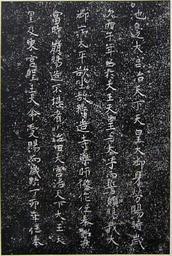 池邊大宮治天下天皇大御身勞賜時歳
次丙午年召於大王天皇与太子而誓願賜我大
御病太平欲坐故将造寺薬師像作仕奉詔然
當時崩賜造不堪者小治田大宮治天下大王天
皇及東宮聖王大命受賜而歳次丁卯年仕奉